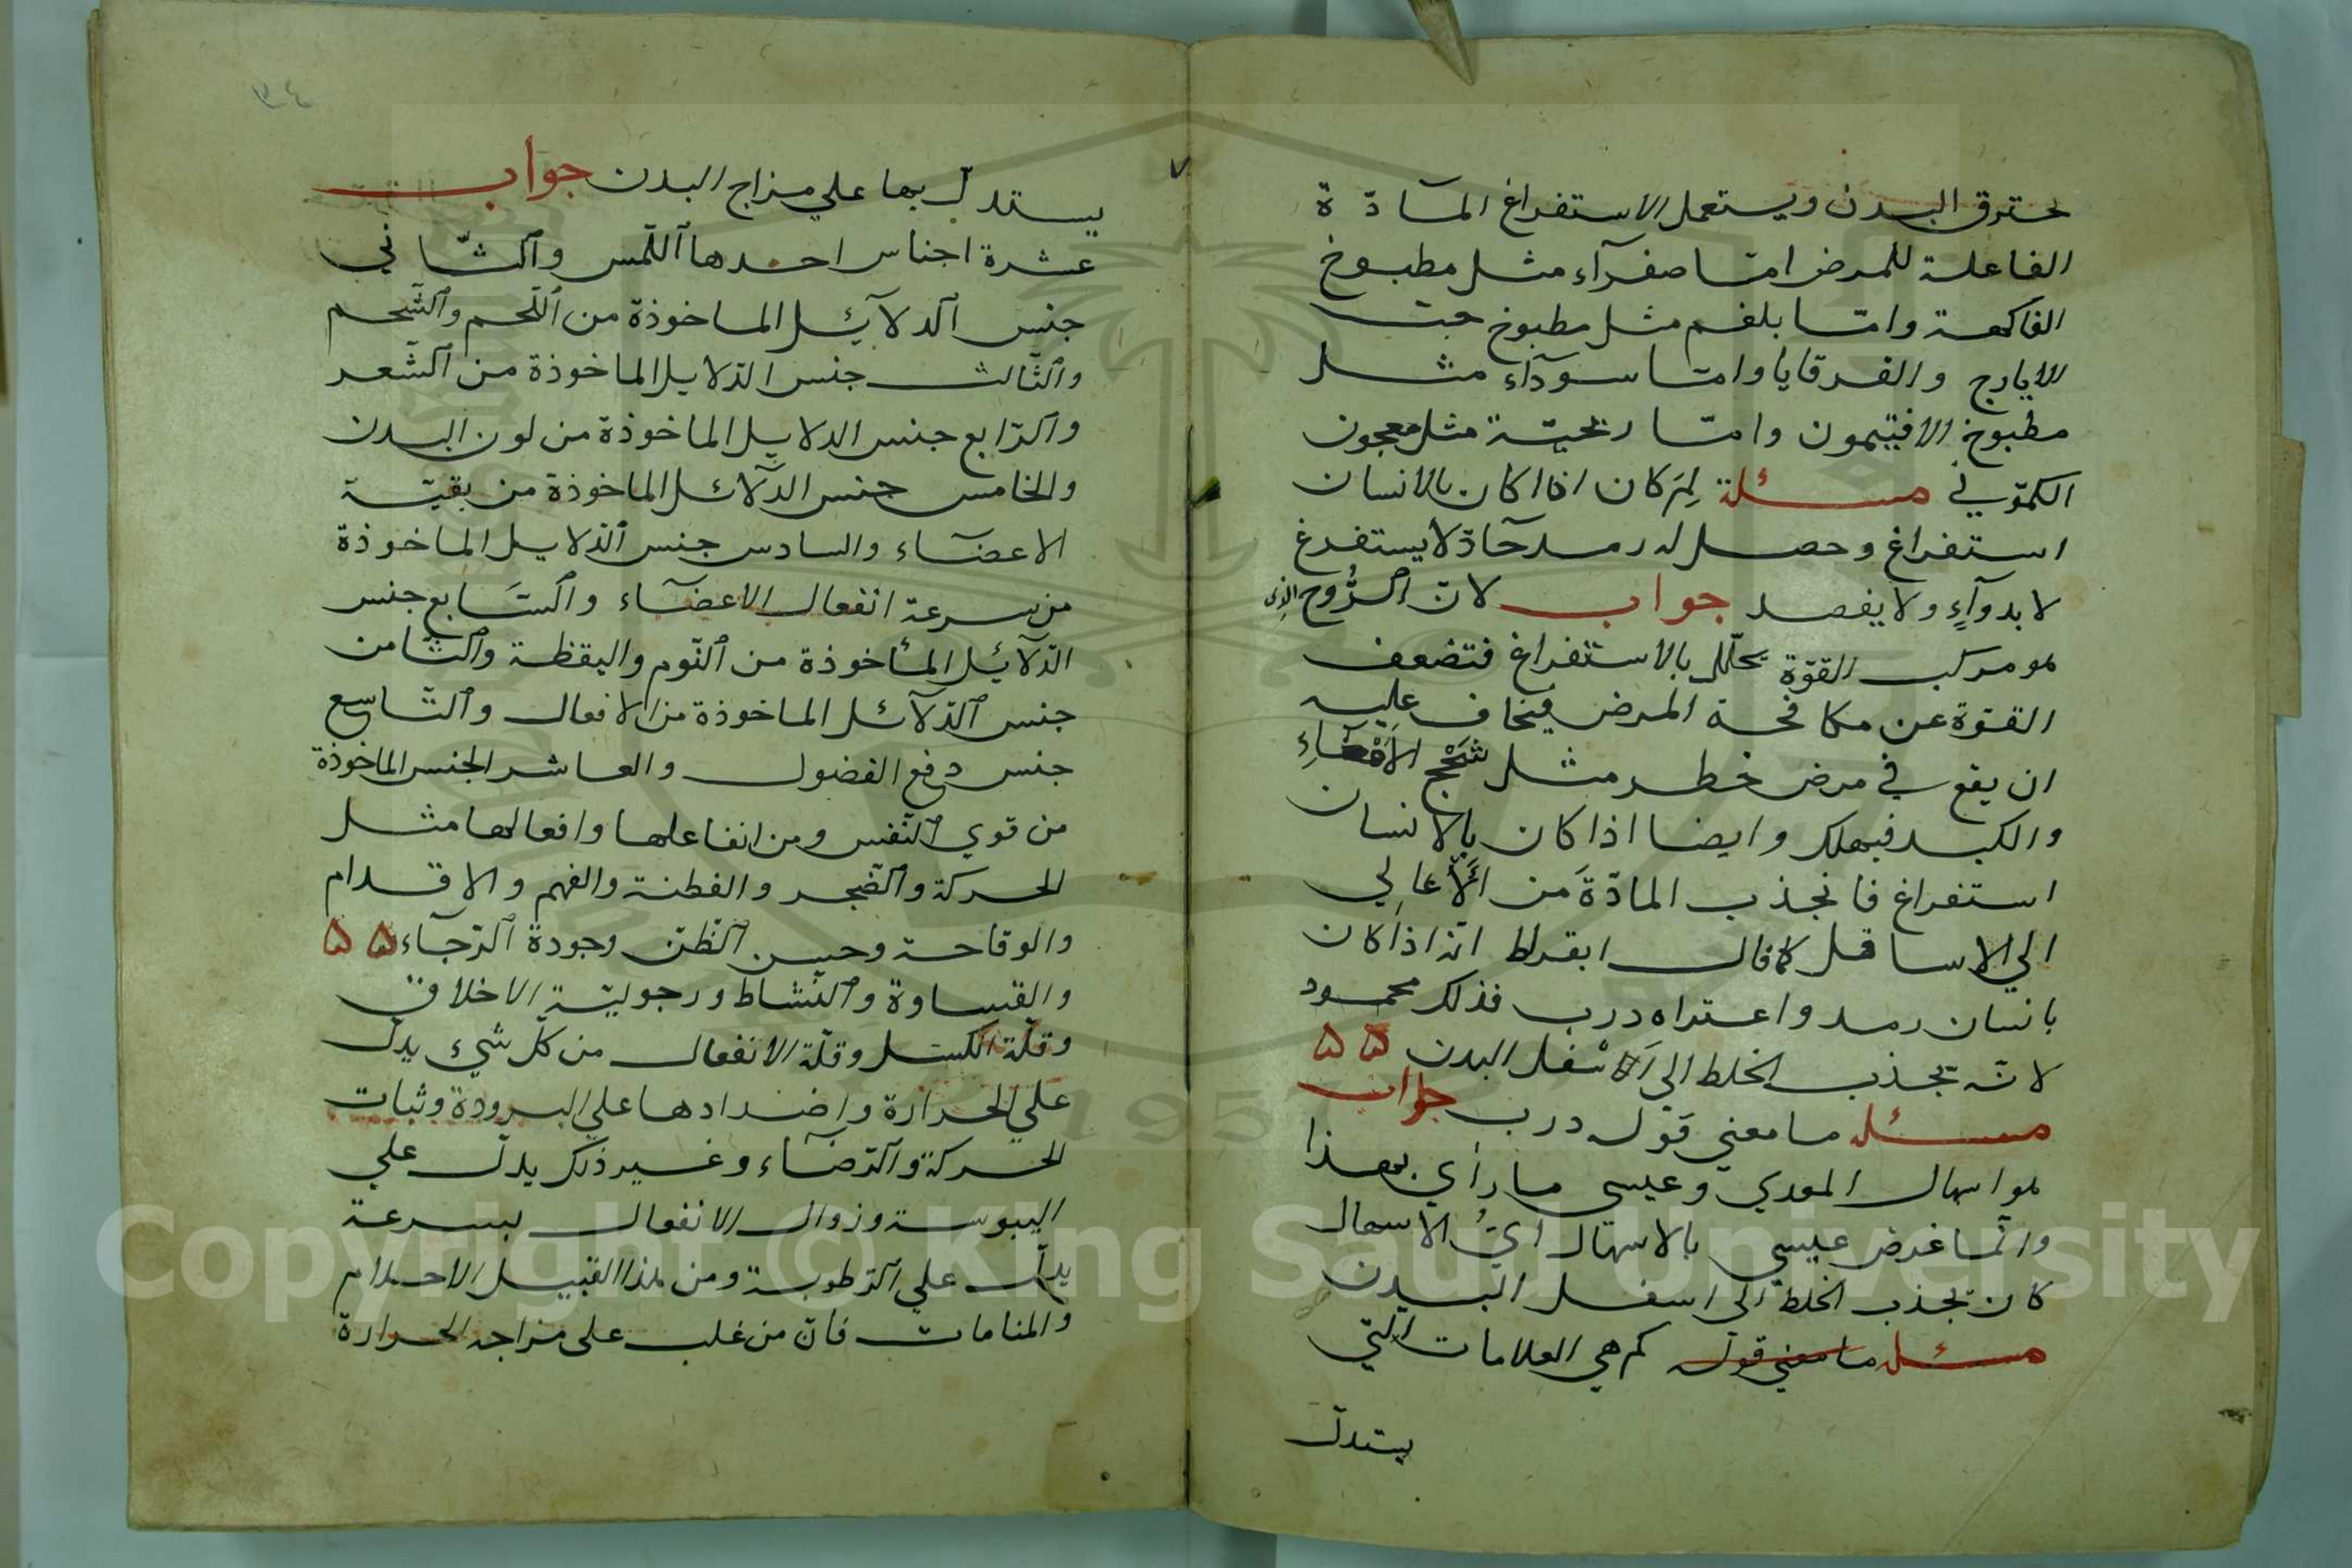 لحترق البدن ويستعمل الاستفراغ المآدّة
الفاعلة للمرض امّا صفرآء مثل مطبوخ
الفاكهة وامّا بلغم مثل مطبوخ حبّ
الايارج والقرقايا وامّا سودآء مثل
مطبوخ الافتيمون وامّا ريحيّة مثل معجون
الكمّوني مسئلة لِمَ كان اذا كان بالانسان
استفراغ وحصل له رمد حآدّ لا يستفرغ
لا بدوآءٍ ولا يفصد جواب لانّ الرُّوح الذى
هو مركب القوّة يحلّل بالاستفراغ فتضعف
القوّة عن مكافحة المرض فيخاف عليه
ان يقع في مرض خطر مثل سَحْج الأمْعَآءِ
والكبد فيهلك وايضا اذا كان بالانسان
استفراغ فانجذب المادّة من الأعالي
الي الاسافل كما قال ابقراط انه اذا كان
بانسان رمد واعتراه درب فذلك محمود
لانّه يجذب الخلط الي اَلاسْفل البدن ۵۵
مسئله ما معني قوله درب جواب
هو اسهال المعدي وعيسى ما رأي بهذا
وانّما غرض عيسي بالاسهال ايّ الاسهال
كان يجذب الخلط الى اسفل البدن
مسئله ما معني قوله كم هي العلامات التّي
يستدلّ
٣٤
يستدلّ بها علي مزاج البدن جواب
عشرة اجناس احدها اللّمس والثّاني
جنس الدلآئل الماخوذة من اللّحم والشّحم
والثّالث جنس الدّلايل الماخوذة من الشّعر
والرّابع جنس الدلايل الماخوذة من لون البدن
والخامس جنس الدّلآئل الماخوذة من بقيّة
الاعضآء والسادس جنس الدّلايل الماخوذة
من سرعة انفعال الاعضآء والسّابع جنس
الدّلآئل المأخوذة من النّوم واليقظة والثّامن
جنس الدّلآئل الماخوذة من الافعال والتّاسع
جنس دفع الفضول والعاشر الجنس الماخوذة
من قوي النّفس ومن انفاعلها وافعالها مثل
الحركة والضّجر والفطنة والفهم والاقدام
والوقاحة وحسن الظّنّ وجودة الرّجآء ۵۵
والقساوة والنّشاط ورجوليّة الاخلاق
وقلّة الكسل وقلّة الانفعال من كلّ شيء يدلّ
علي الحرارة واضدادها علي البرودة وثبات
الحركة والرّضآء وغير ذلك يدلّ علي
اليبوسة وزوال الانفعال بسرعة
يدلّ علي الرّطوبة ومن هذا القبيل الاحلام
والمنامات فانّ من غلب على مزاجه الحرارة
Copyright © King Saud University
1957